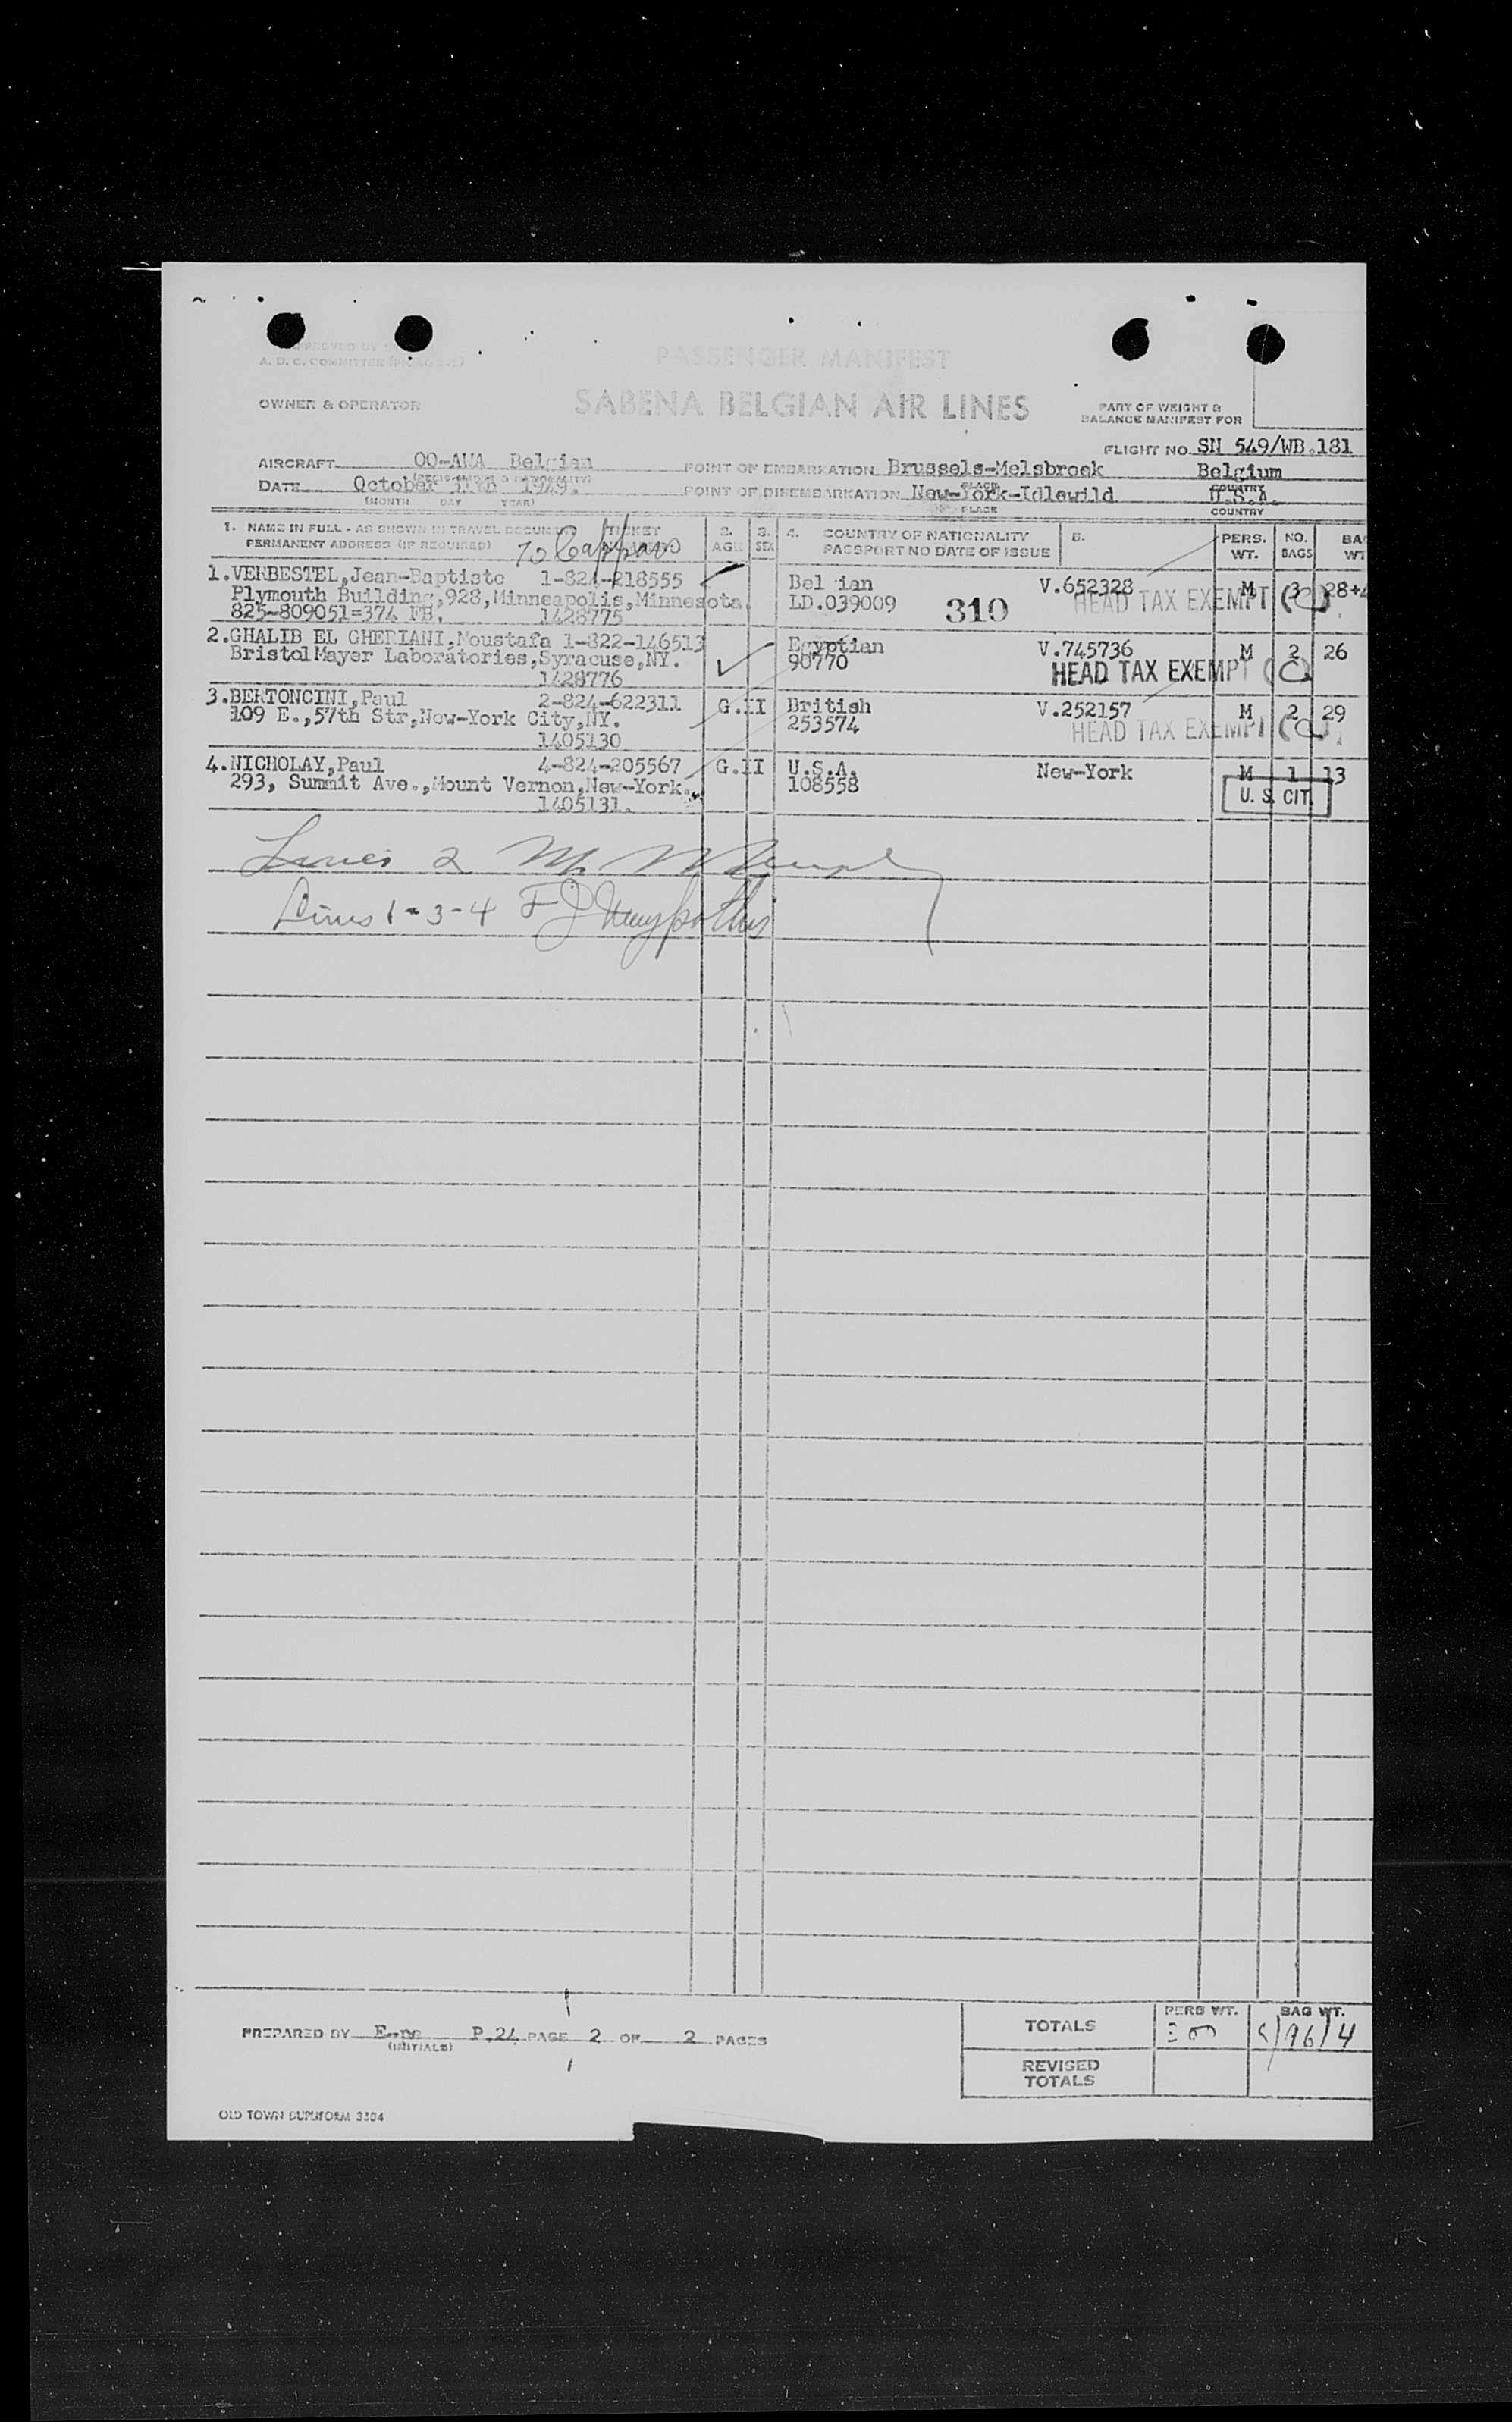 APPROVED BY
A. D. C. COMMITTEE
PASSENGER MANIFEST
OWNER & OPERATOR
SABENA BELGIAN AIR LINES
PART OF WEIGHT &
BALANCE MANIFEST FOR
FLIGHT NO. SN 549/WB.181
AIRCRAFT Belgian POINT OF EMBARKATION Brussels-Melsbroek Belgium
PLACE COUNTRY
DATE October 1949. POINT OF DISEMBARKATION New-York-Idlewild U.S.A.
(MONTH DAY YEAR) PLACE COUNTRY
1. NAME IN FULL - AS SHOWN IN TRAVEL DOCUMENT TICKET 2. 3. 4. COUNTRY OF NATIONALITY 5. PERS. NO. BAG
PERMANENT ADDRESS (IF REQUIRED) AGE SEX PASSPORT NO DATE OF ISSUE WT. BAGS WT
1.VERBESTEL,Jean-Baptiste 1-824-218555 Bel ian V.652328 M 3 28+4
Plymouth Building,928,Minneapolis,Minnesota. LD.039009 310 HEAD TAX EXEMPT
825-809051=374 FB. 1428775
2.GHALIB EL GHERIANI,Moustafa 1-822-146513 Egyptian V.745736 M 2 26
BristolMayer Laboratories,Syracuse,NY. 90770 HEAD TAX EXEMPT
1428776
3.BERTONCINI,Paul 2-824-622311 G.II British V.252157 M 2 29
109 E.,57th Str,New-York City,NY. 253574 HEAD TAX EXEMPT
1405130
4.NICHOLAY,Paul 4-824-205567 G.II U.S.A. New-York M 1 13
293, Summit Ave.,Mount Vernon,New-York. 108558 U. S. CIT.
1405131.
Lines 2
Lines 1-3-4
PERS WT. BAG WT.
TOTALS
PREPARED BY P.24 PAGE 2 OF 2 PAGES
(INITIALS)
REVISED
TOTALS
OLD TOWN DUPLIFORM 3304